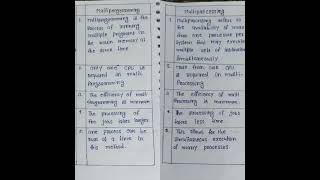 Multiprogramming
1. Multiprogramming is the
process of running
multiple programs in
the main memory at
the same time
2. Only one CPU is
required in multi-
Programming
3. The efficiency of mult-
Programming is minimum.
4. The processing of
the jobs takes longer
5. one process can be
run at a time in
this method.
Multiprocessing
1. Multiprocessing refers to
the availability of more
than one processor per
system that may execute
multiple sets of instruction
simultaneously
2. more than one CPU
is required in multi-
Processing
3. The efficiency of multi
Processing is maximum.
4. The processing of jobs
takes less time.
5. This allows for the
simultaneous execution
of many processes.